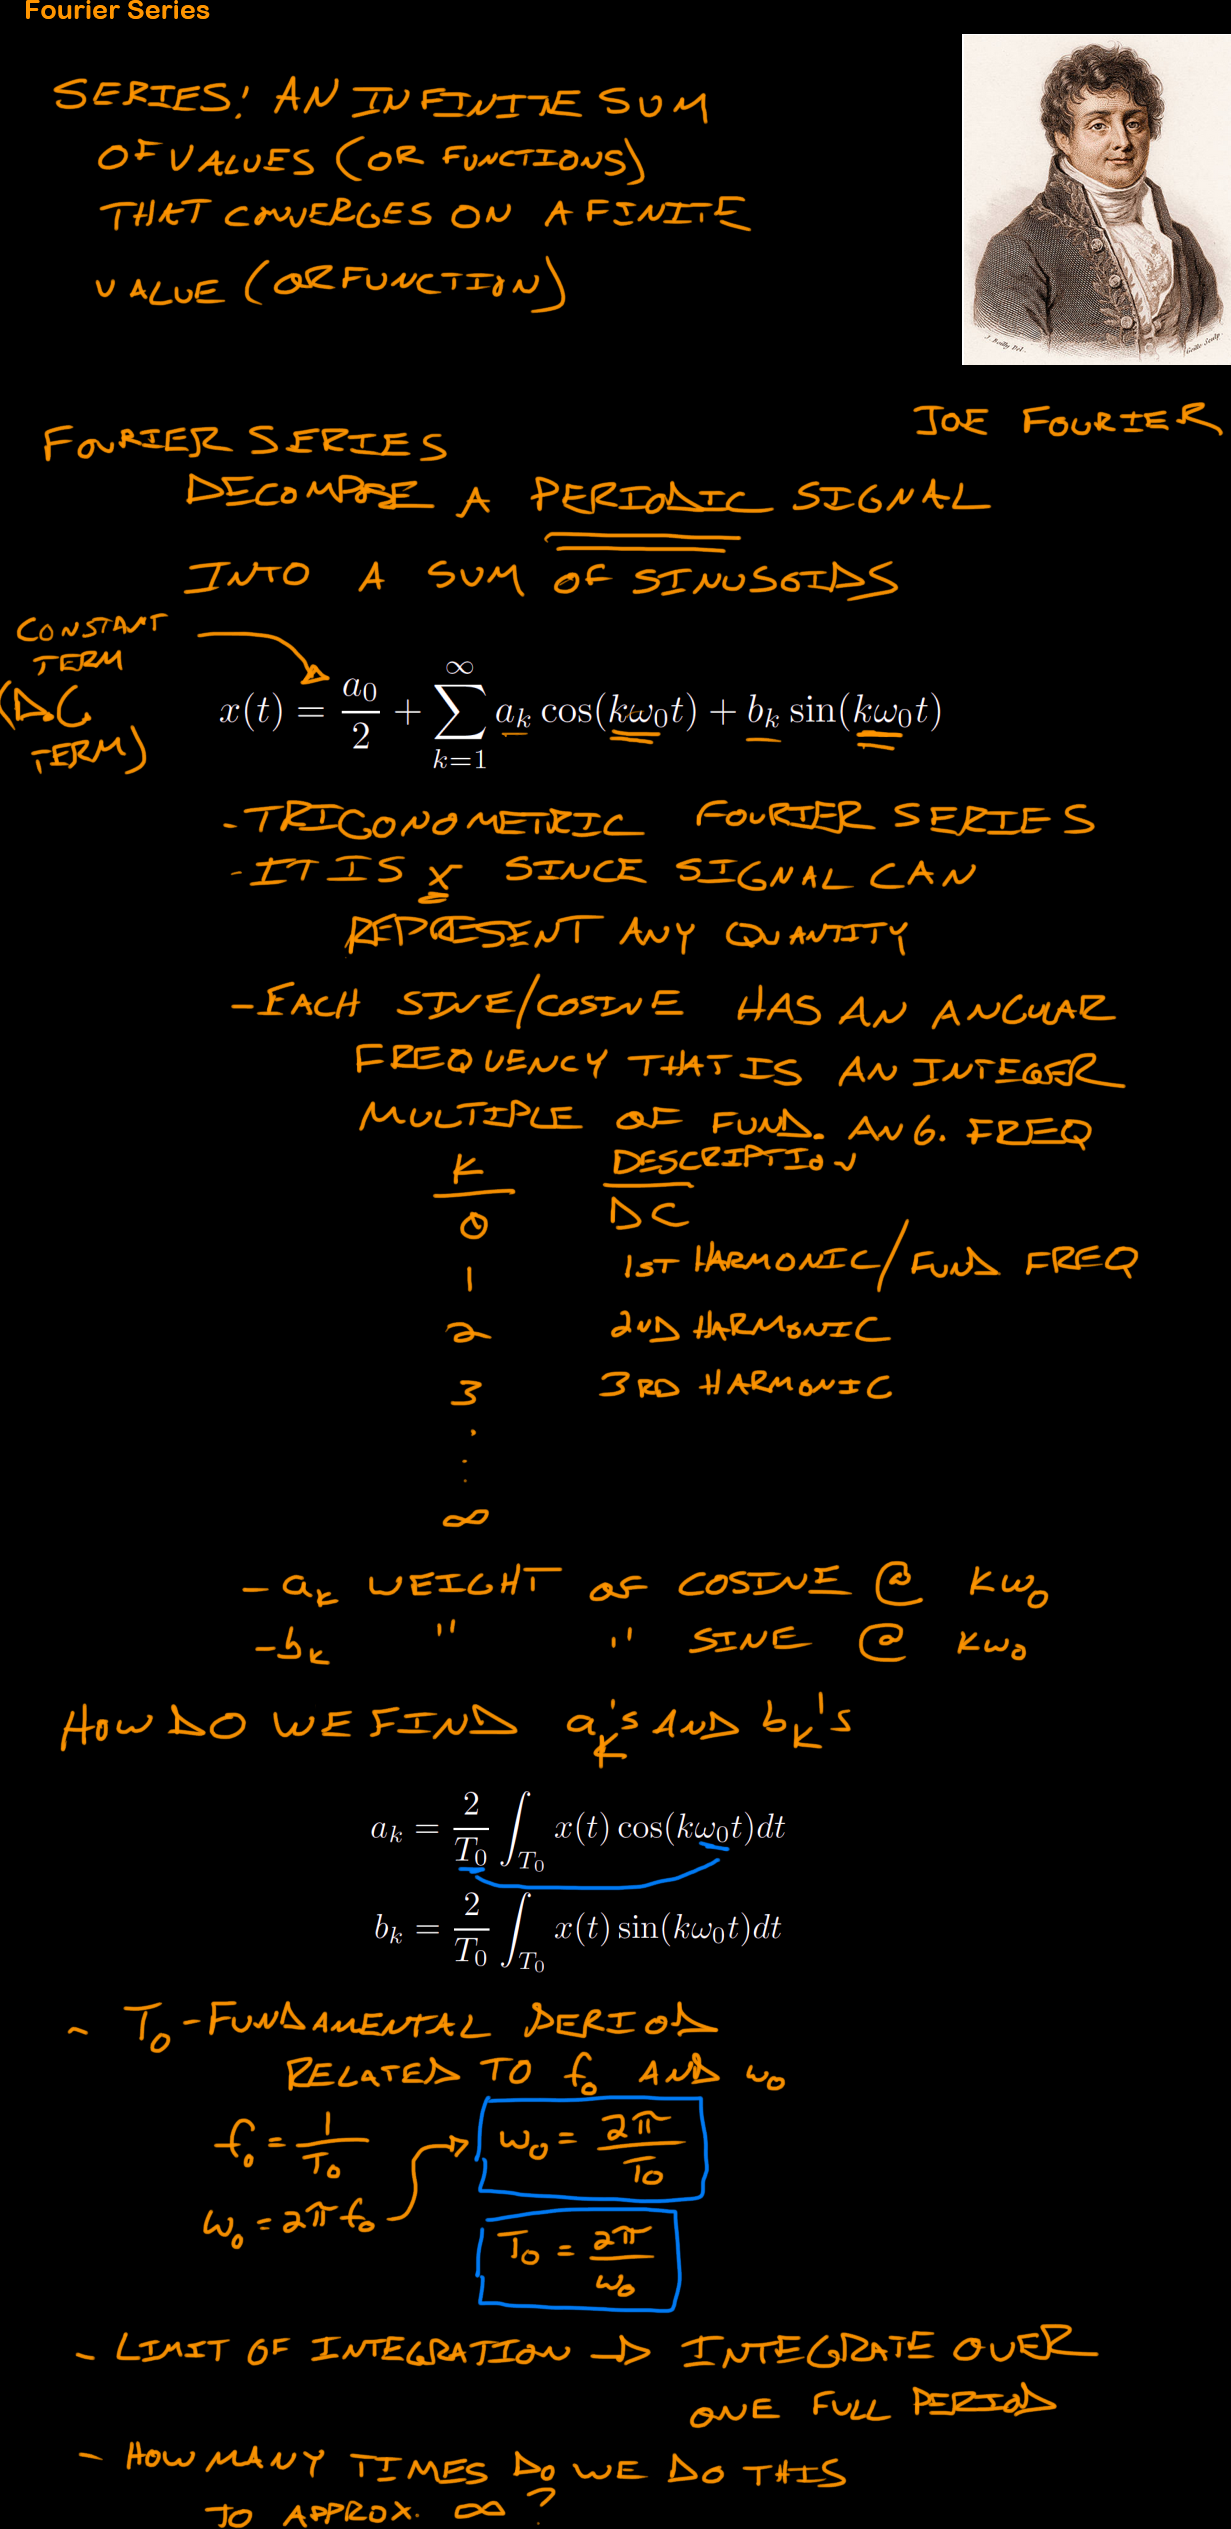 Fourier Series
SERIES: AN INFINITE SUM
OF VALUES (OR FUNCTIONS)
THAT CONVERGES ON A FINITE
VALUE (OR FUNCTION)
J. Boilly Del.
Geille Sculp.
JOE FOURIER
FOURIER SERIES
DECOMPOSE A PERIODIC SIGNAL
INTO A SUM OF SINUSOIDS
CONSTANT
TERM
(DC
TERM)
x(t) = a₀/2 + ∑_{k=1}^{∞} a_k cos(kω₀t) + b_k sin(kω₀t)
- TRIGONOMETRIC FOURIER SERIES
- IT IS x SINCE SIGNAL CAN
REPRESENT ANY QUANTITY
- EACH SINE/COSINE HAS AN ANGULAR
FREQUENCY THAT IS AN INTEGER
MULTIPLE OF FUND. ANG. FREQ
K DESCRIPTION
0 DC
1 1ST HARMONIC/FUND FREQ
2 2ND HARMONIC
3 3RD HARMONIC
⋮
∞
- a_k WEIGHT OF COSINE @ kω₀
- b_k " " SINE @ kω₀
HOW DO WE FIND a_k's AND b_k's
a_k = 2/T₀ ∫_{T₀} x(t) cos(kω₀t)dt
b_k = 2/T₀ ∫_{T₀} x(t) sin(kω₀t)dt
- T₀ - FUNDAMENTAL PERIOD
RELATED TO f₀ AND ω₀
f₀ = 1/T₀ → ω₀ = 2π/T₀
ω₀ = 2πf₀
T₀ = 2π/ω₀
- LIMIT OF INTEGRATION → INTEGRATE OVER
ONE FULL PERIOD
- HOW MANY TIMES DO WE DO THIS
TO APPROX. ∞ ?